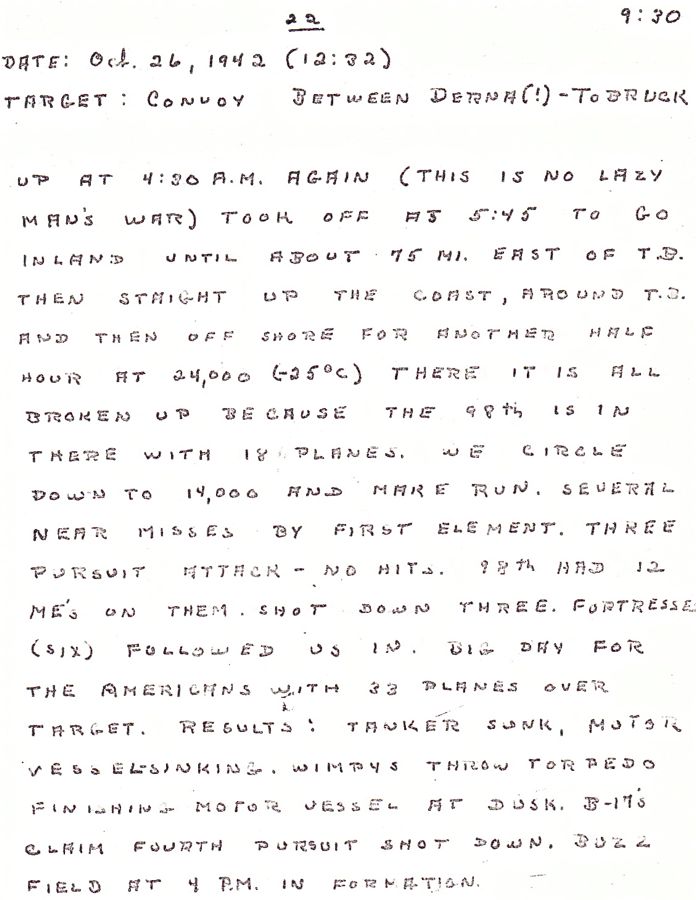 22 9:30
DATE: Oct. 26, 1942 (12:32)
TARGET: CONVOY BETWEEN DERNA(!)-TOBRUCK
UP AT 4:30 A.M. AGAIN (THIS IS NO LAZY
MAN'S WAR) TOOK OFF AT 5:45 TO GO
INLAND UNTIL ABOUT 75 MI. EAST OF T.B.
THEN STRAIGHT UP THE COAST, AROUND T.B.
AND THEN OFF SHORE FOR ANOTHER HALF
HOUR AT 24,000 (-25°C) THERE IT IS ALL
BROKEN UP BECAUSE THE 98th IS IN
THERE WITH 18 PLANES. WE CIRCLE
DOWN TO 14,000 AND MAKE RUN. SEVERAL
NEAR MISSES BY FIRST ELEMENT. THREE
PURSUIT ATTACK - NO HITS. 98th HAD 12
ME's ON THEM. SHOT DOWN THREE. FORTRESSE
(SIX) FOLLOWED US IN. BIG DAY FOR
THE AMERICANS WITH 33 PLANES OVER
TARGET. RESULTS: TANKER SUNK, MOTOR
VESSEL-SINKING. WIMPYS THROW TORPEDO
FINISHING MOTOR VESSEL AT DUSK. B-17's
CLAIM FOURTH PURSUIT SHOT DOWN. BUZZ
FIELD AT 4 P.M. IN FORMATION.